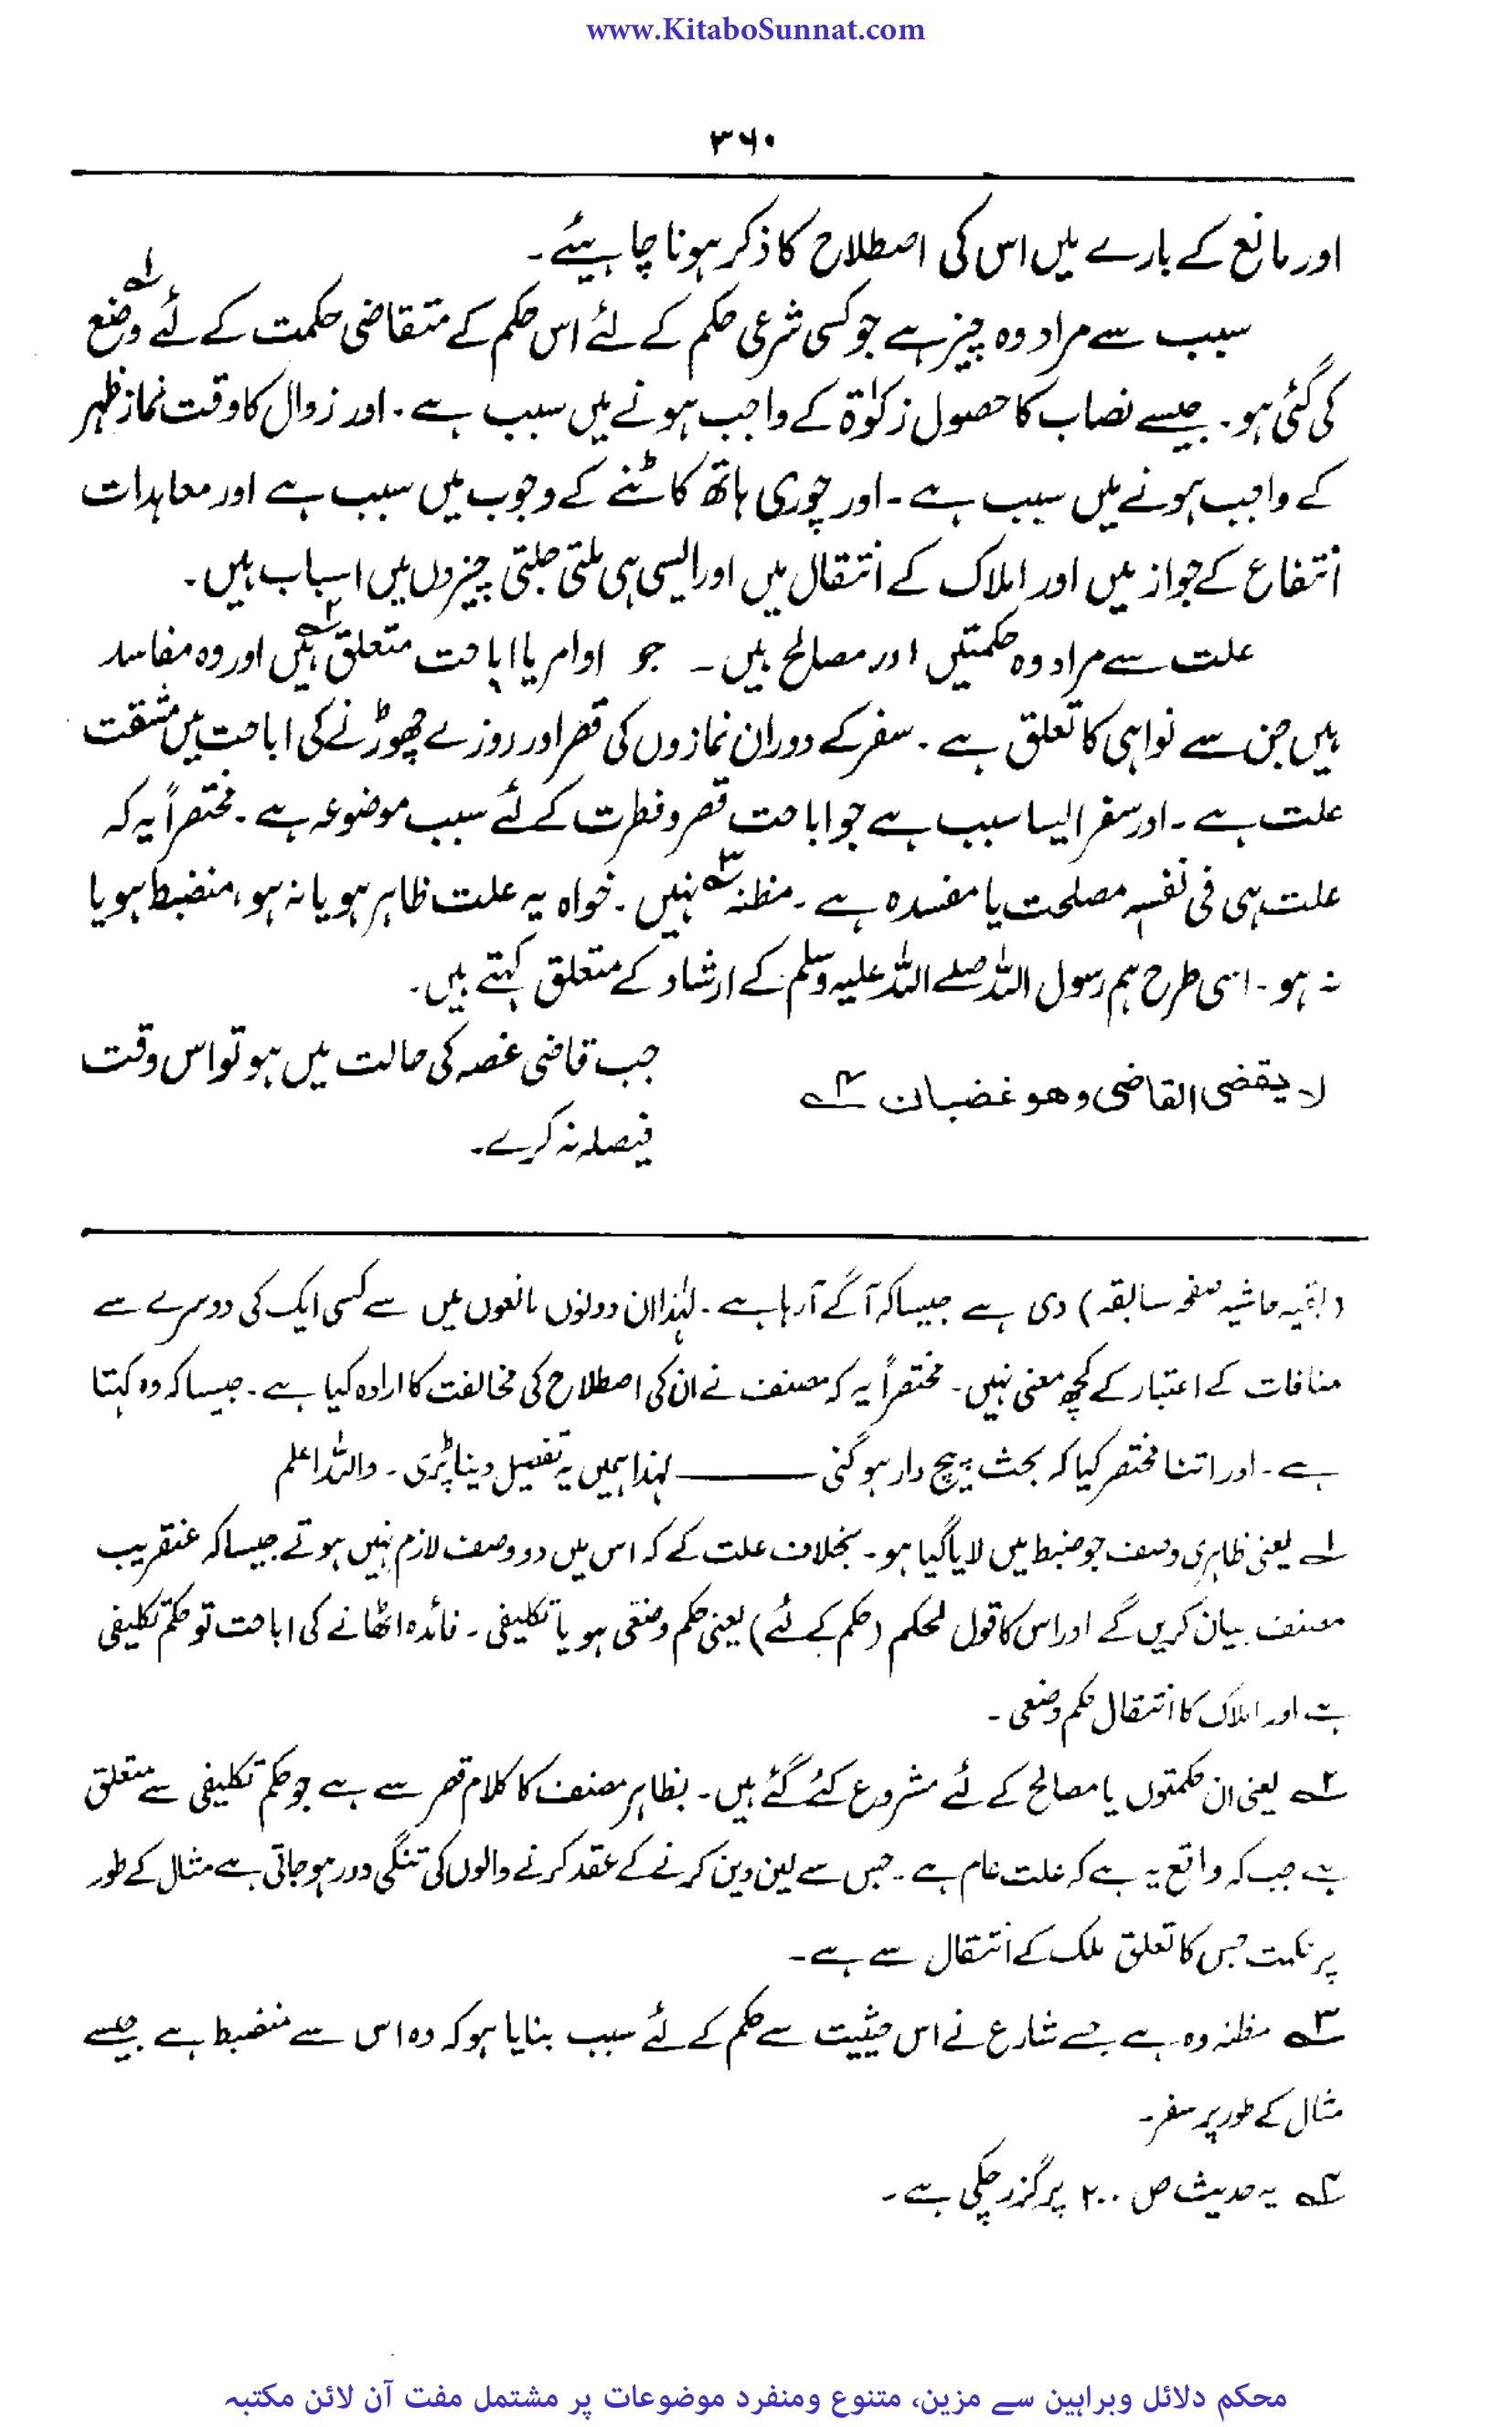 www.KitaboSunnat.com
۳۶۰
اور مانع کے بارے میں اس کی اصطلاح کا ذکر ہونا چاہیئے۔
سبب سے مراد وہ چیز ہے جو کسی شرعی حکم کے لئے اس حکم کے متقاضی حکمت کے لئے وضع۱؎
کی گئی ہو۔ جیسے نصاب کا حصول زکوٰۃ کے واجب ہونے میں سبب ہے۔ اور زوال کا وقت نماز ظہر
کے واجب ہونے میں سبب ہے۔ اور چوری ہاتھ کاٹنے کے وجوب میں سبب ہے اور معاہدات
انتفاع کے جواز میں اور املاک کے انتقال میں اور ایسی ہی ملتی جلتی چیزوں میں اسباب ہیں۔
علت سے مراد وہ حکمتیں اور مصالح ہیں۔ جو اوامر یا اباحت متعلق۲؎ ہیں اور وہ مفاسد
ہیں جن سے نواہی کا تعلق ہے۔ سفر کے دوران نمازوں کی قصر اور روزے چھوڑنے کی اباحت میں مشقت
علت ہے۔ اور سفر ایسا سبب ہے جو اباحت قصر و فطرت کے لئے سبب موضوعہ ہے۔ مختصراً یہ کہ
علت ہی فی نفسہ مصلحت یا مفسدہ ہے۔ مظنہ۳؎ نہیں۔ خواہ یہ علت ظاہر ہو یا نہ ہو، منضبط ہو یا
نہ ہو۔ اسی طرح ہم رسول اللہ صلے اللہ علیہ وسلم کے ارشاد کے متعلق کہتے ہیں۔
لا یقضی القاضی وھو غضبان ۴؎
جب قاضی غصہ کی حالت میں ہو تو اس وقت
فیصلہ نہ کرے۔
(بقیہ حاشیہ صفحہ سابقہ) دی ہے جیسا کہ آگے آ رہا ہے۔ لہٰذا ان دونوں مانعوں میں سے کسی ایک کی دوسرے سے
منافات کے اعتبار کے کچھ معنی نہیں۔ مختصراً یہ کہ مصنف نے ان کی اصطلاح کی مخالفت کا ارادہ کیا ہے۔ جیسا کہ وہ کہتا
ہے۔ اور اتنا مختصر کیا کہ بحث پیچ دار ہو گئی ——— لہذا ہمیں یہ تفصیل دینا پڑی۔ واللہ اعلم
۱؎ یعنی ظاہری وصف جو ضبط میں لایا گیا ہو۔ بخلاف علت کے کہ اس میں دو وصف لازم نہیں ہوتے جیسا کہ عنقریب
مصنف بیان کریں گے اور اس کا قول لحکم (حکم کے لئے) یعنی حکم وضعی ہو یا تکلیفی۔ فائدہ اٹھانے کی اباحت تو حکم تکلیفی
ہے اور املاک کا انتقال حکم وضعی۔
۲؎ یعنی ان حکمتوں یا مصالح کے لئے مشروع کئے گئے ہیں۔ بظاہر مصنف کا کلام قصر سے ہے جو حکم تکلیفی سے متعلق
ہے جب کہ واقع یہ ہے کہ علت عام ہے۔ جس سے لین دین کرنے کے عقد کرنے والوں کی تنگی دور ہو جاتی ہے مثال کے طور
پر حکمت جس کا تعلق ملک کے انتقال سے ہے۔
۳؎ مظنہ وہ ہے جسے شارع نے اس حیثیت سے حکم کے لئے سبب بنایا ہو کہ وہ اس سے منضبط ہے جیسے
مثال کے طور پر سفر۔
۴؎ یہ حدیث ص ۲۰۰ پر گزر چکی ہے۔
محکم دلائل وبراہین سے مزین، متنوع ومنفرد موضوعات پر مشتمل مفت آن لائن مکتبہ